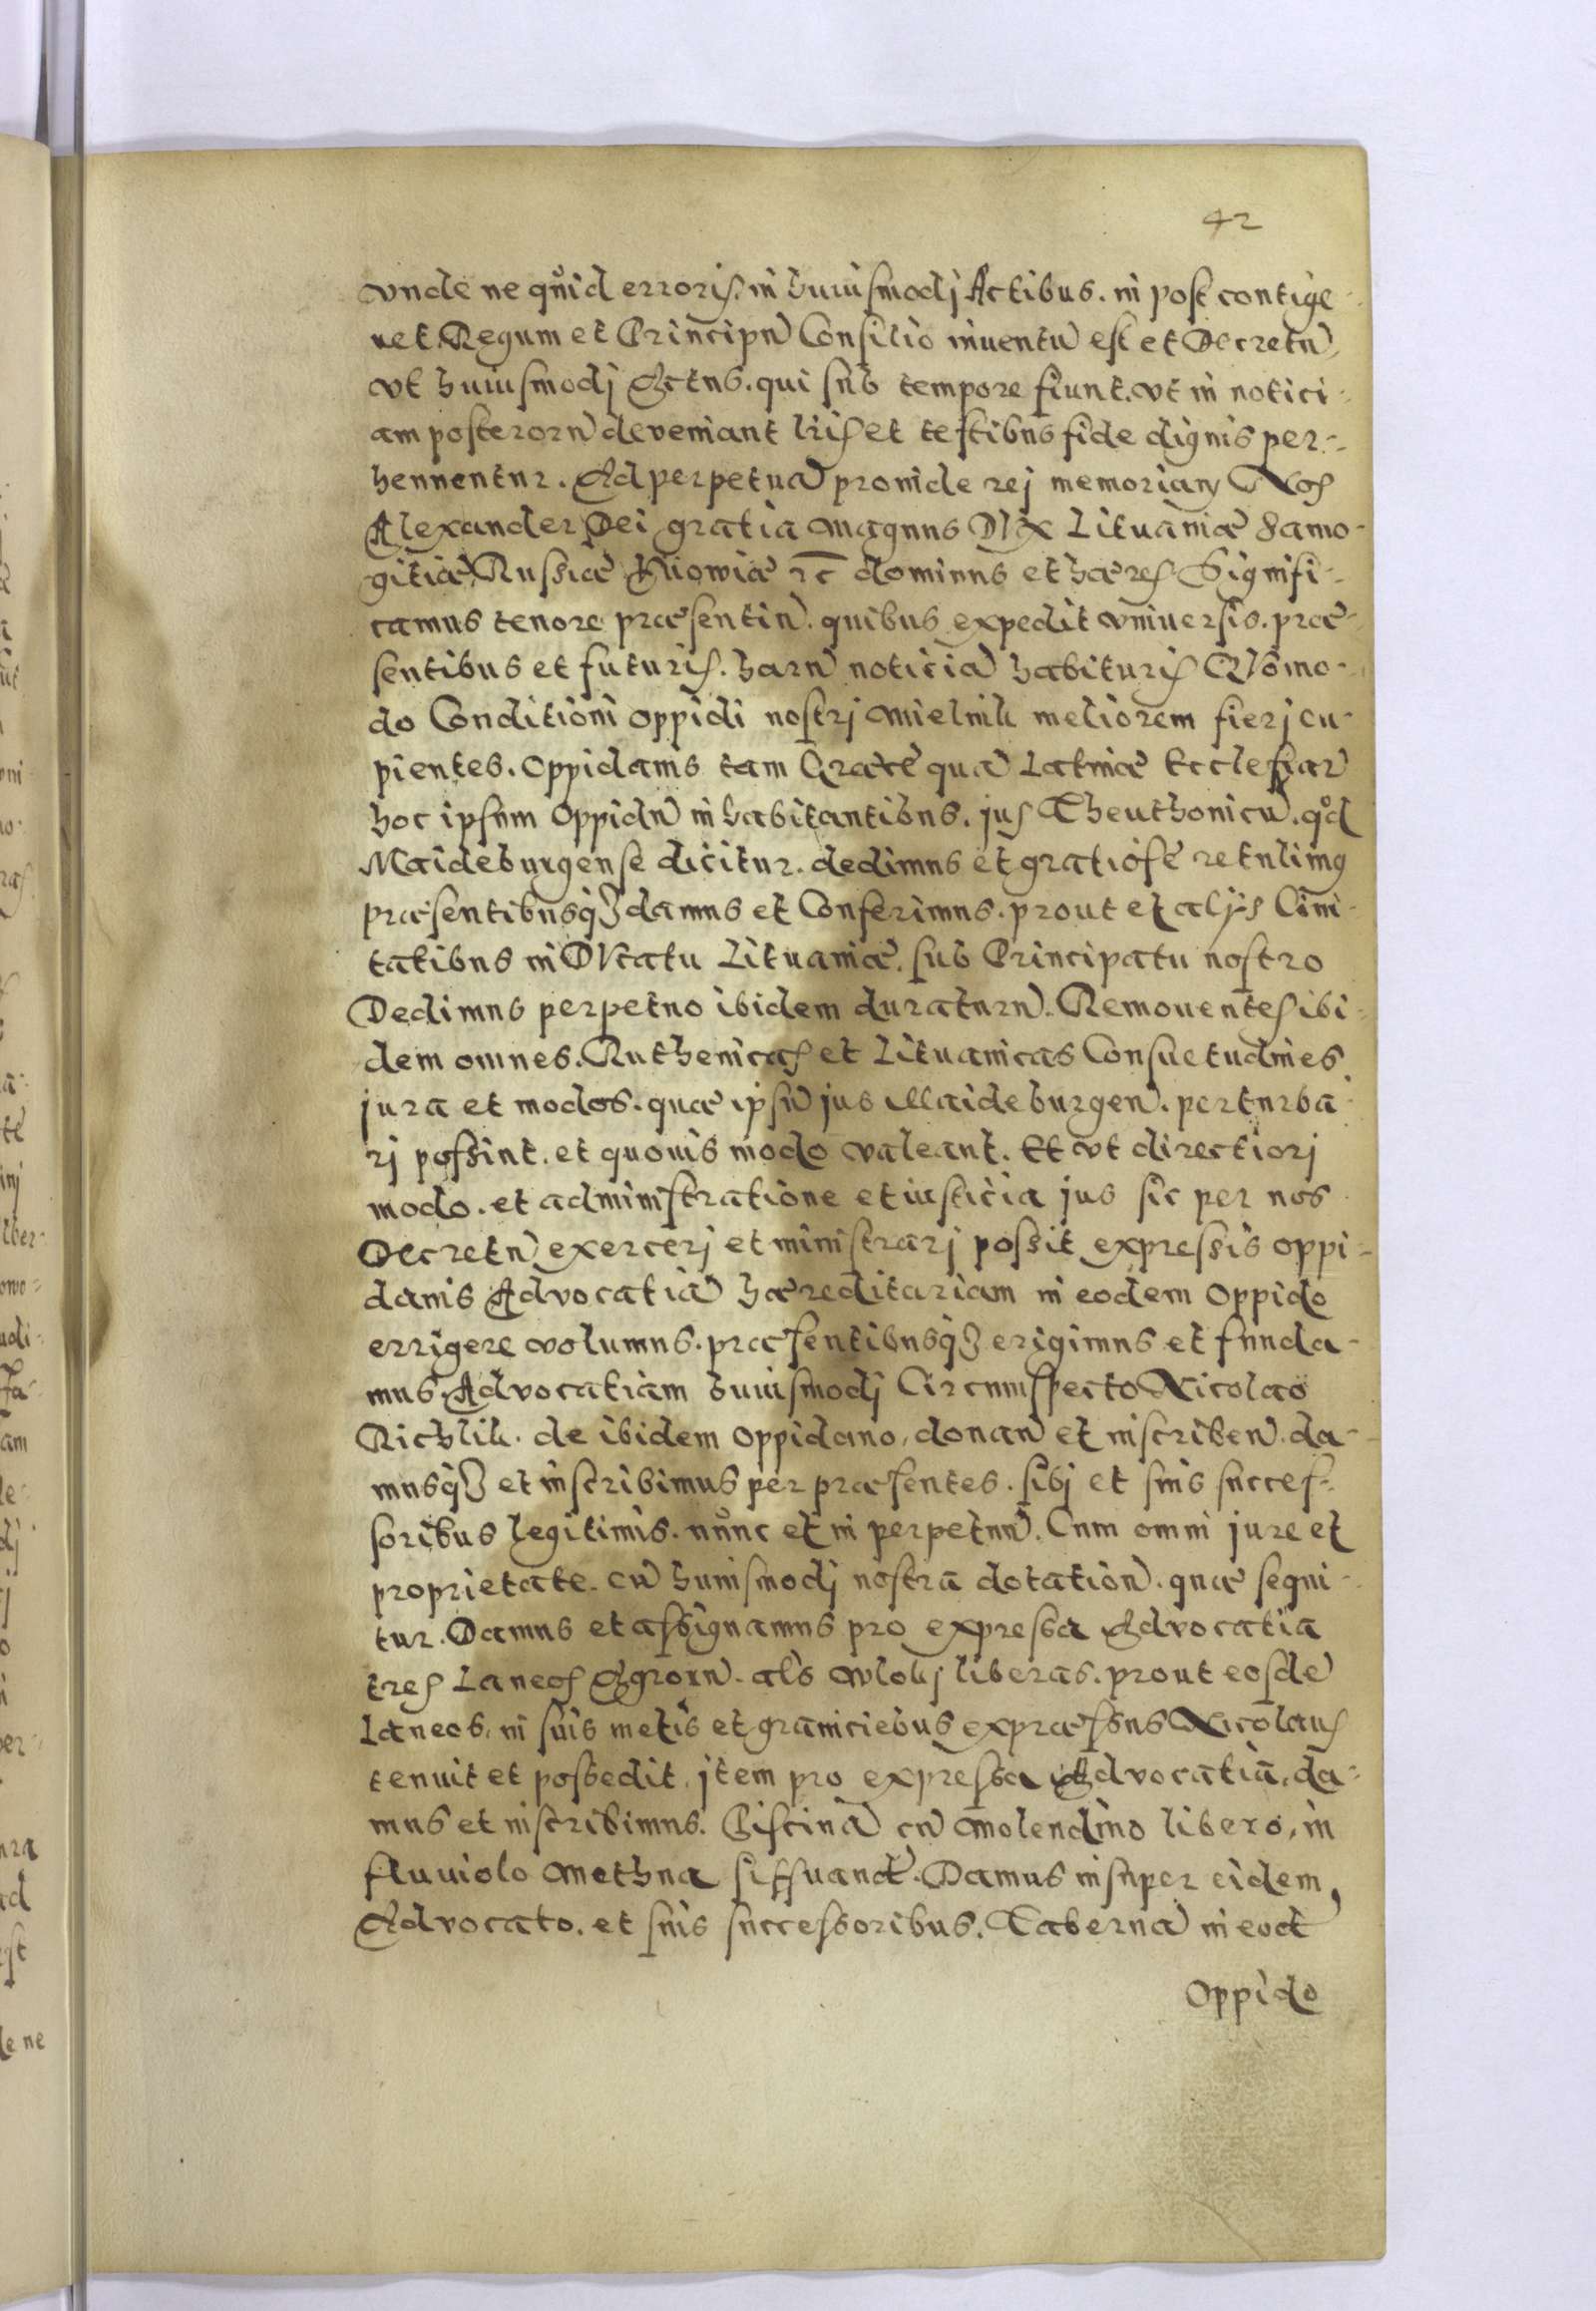 42
vnde ne quid erroris. in huiusmodj Actibus. in post contige-
ret. Regum et Principũ Consilio inuentũ est et Decretũ,
vt huiusmodj Actus. qui sub tempore fiunt. vt in notici-
am posterorũ deveniant lr̃is et testibus fide dignis per-
hennentur. Ad perpetuã proinde rej memoriam Nos
Alexander Dei gratia Magnus DVx Lituaniæ Samo-
gitiæ Russiæ Kiiowiæ ꝛc̄ dominus et hæres. Signifi-
camus tenore præsentiũ. quibus expedit vniuersis. præ-
sentibus et futuris. harũ noticiã habituris QVomo-
do Conditionẽ oppidi nostrj Mielnik meliorem fierj cu-
pientes. Oppidanis tam Græcæ quã Latinæ Ecclesiarũ
hoc ipsum Oppidũ inhabitantibus. jus Theuthonicũ. qd
Maideburgense dicitur. dedimus et gratiose retulimus
præsentibusq3 damus et Conferimus. prout et alijs Civi-
tatibus in DVcatu Lituaniæ. sub Principatu nostro
Dedimus perpetuo ibidem duraturũ. Remouentes ibi-
dem omnes. Ruthenicas et Lituanicas Consuetudines
jura et modos. quæ ipsũ jus Maideburgen. perturba-
rj possint. et quouis modo valeant. Et vt directiorj
modo. et administratione et iusticia jus sic per nos
Decretũ exercerj et ministrarj possit expressis oppi-
danis Advocatiã hæreditariam in eodem Oppido
errigere volumus. præsentibusq3 erigimus et funda-
mus. Advocatiam huiusmodj Circumspecto Nicolao
Richlik. de ibidem oppidano, donan et inscriben. da-
musq3 et inscribimus per præsentes. sibj et suis succes-
soribus legitimis. nunc et in perpetuũ. Cum omni jure et
proprietate. cũ huiusmodj nostra dotation. quæ sequi-
tur. Damus et assignamus pro expressa Advocatia
tres Laneos Agrorũ. als Wlokj liberas. prout eosdẽ
Laneos, in suis metis et graniciebus expræssus Nicolaus
tenuit et possedit, jtem pro expressa Advocatia, da-
mus et inscribimus. Piscinã cũ Molendino libero, in
fluuiolo Methna sittuand. Damus insuper eidem
Advocato. et suis successoribus. Tabernã in eod
Oppido